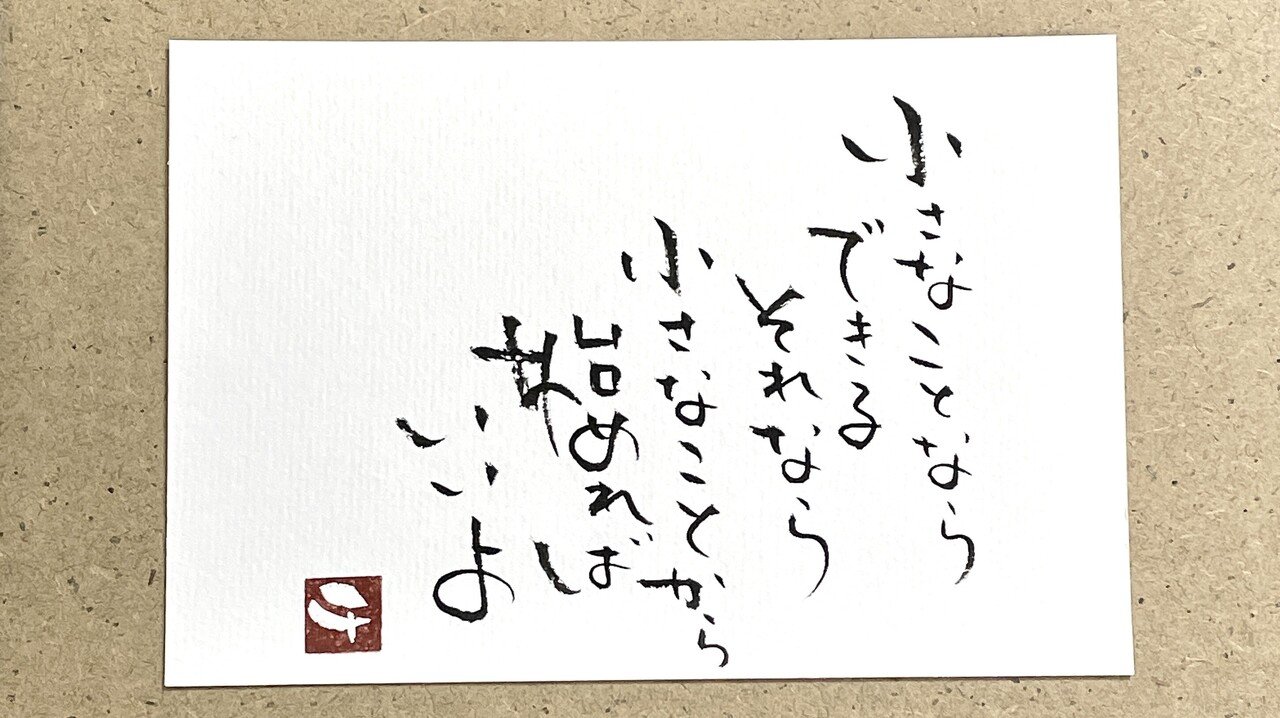 小さなことなら
できる
それなら
小さなことから
始めれば
いいよ